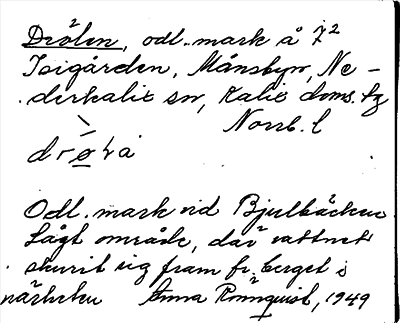 Drölen, odl. mark å 7²
Isigården, Månsbyn, Ne-
derkalix sn, Kalix doms. tg
Norrb. l
Odl. mark vid Bjulbäcken.
Lågt område, där vattnet
skurit sig fram fr. berget i
närheten Anna Rönnquist, 1949